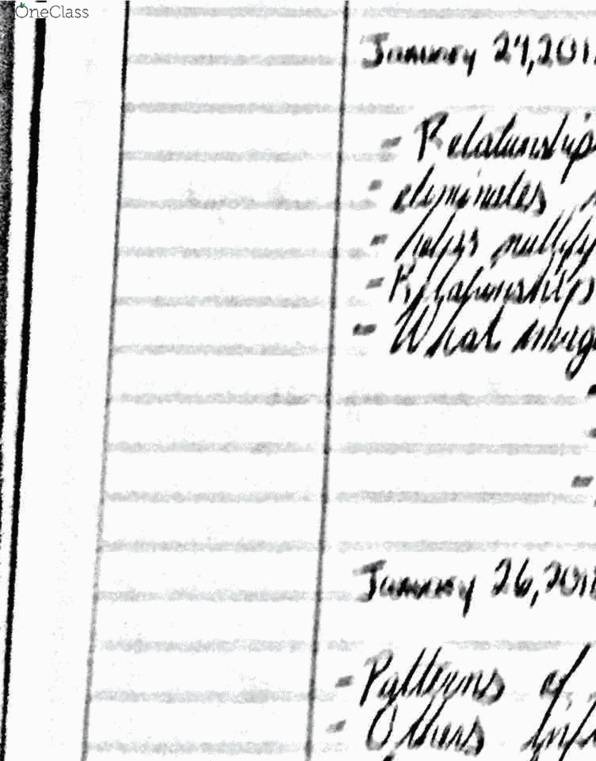 OneClass
January 24, 201
- Relationship
- eliminates
- helps nullify
- Relationships
- What
January 26, 201
- Patterns of
- Others